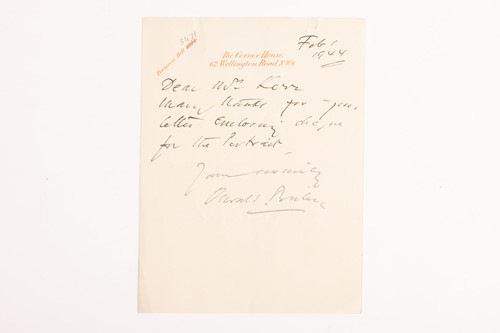 Primrose Hill 8471
The Corner House,
62 Wellington Road N.W.8
Feb 1
1944
Dear Mrs Kerr
Many thanks for your
letter enclosing cheque
for the Portrait
Yours sincerely
Oswald Birley